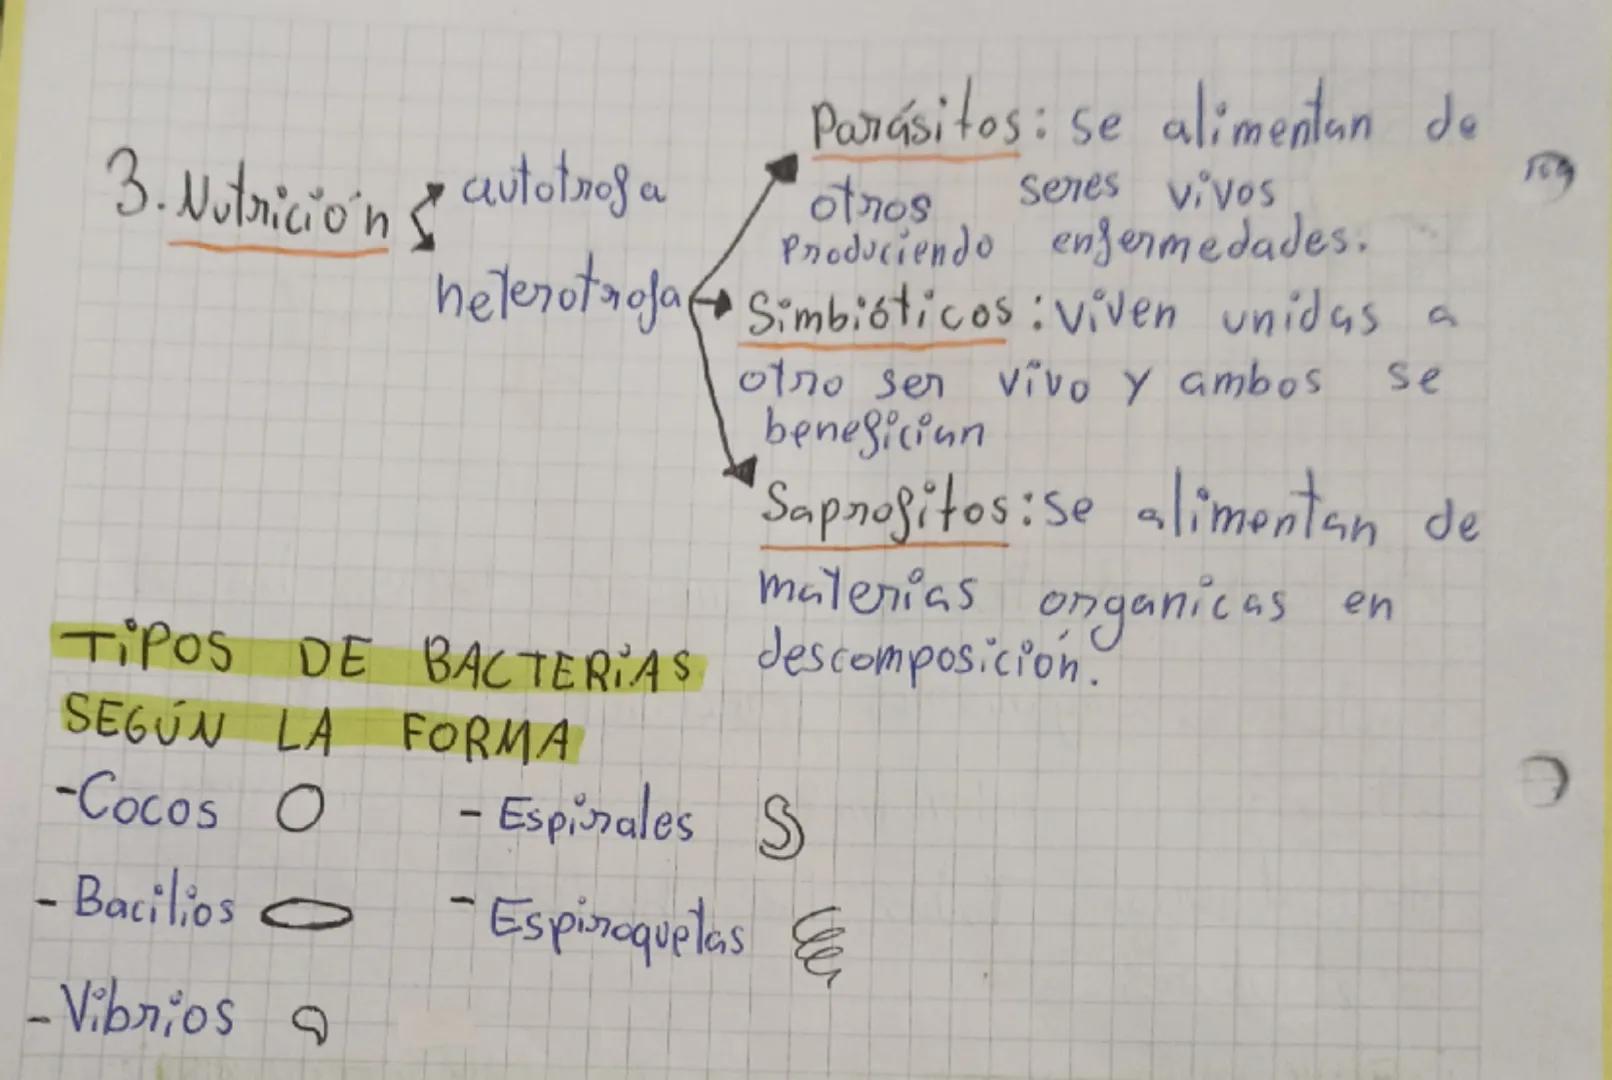 3. Nutrición
autotrofa
heterotrofa
Parásitos: se alimentan de
otros seres vivos
Produciendo enfermedades.
Simbióticos: viven unidas a
otro ser vivo y ambos se
benefician
Saprofitos: se alimentan de
materias organicas en
descomposición.
TIPOS DE BACTERIAS
SEGÚN LA FORMA
- Cocos
- Bacilios
- Vibrios
- Espirales
- Espiroquetas